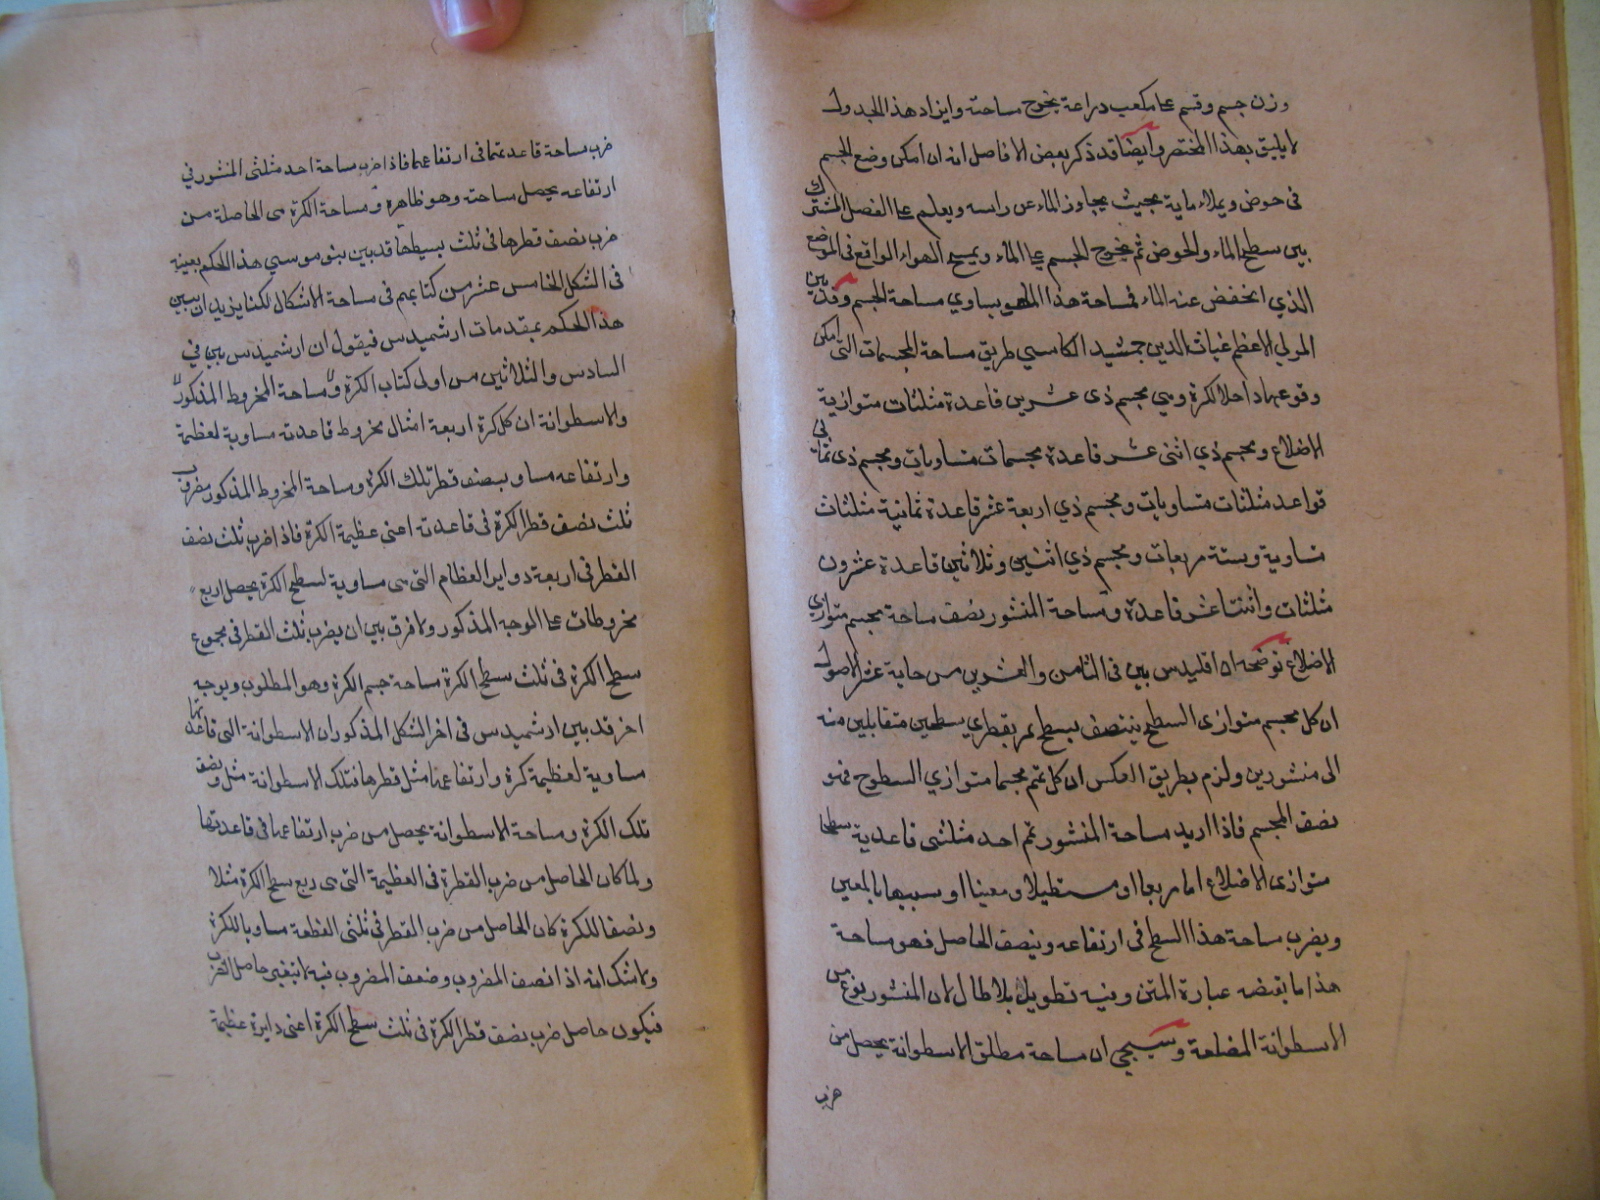 وزن جسم وقسم على مكعب ذراعة يخرج مساحته وايراد هذا الجدول
لا يليق بهذا المختصر وايضا قد ذكر بعض الافاضل انه ان امكن وضع الجسم
فى حوض ويملاء ماية بحيث يجاوز الماء عن راسه ويعلم على الفصل المشترك
بين سطح الماء والحوض ثم يخرج الجسم على الماء ويمسح الهواء الواقع فى الموضع
الذي انخفض عنه الماء فمساحة هذا الهو يساوي مساحة الجسم وقد بين
المولي الاعظم غياث الدين جمشيد الكاسي طريق مساحة المجسمات التى امكن
وقوعها داخل الكرة وهي مجسم ذى عشرين قاعدة مثلثات متوازية
الاضلاع ومجسم ذي اثنى عشر قاعدة مجسمات متساويات ومجسم ذى ثمانى
قواعد مثلثات متساويات ومجسم ذي اربعة عشر قاعدة ثمانية مثلثات
متساوية وستة مربعات ومجسم ذي اثنين وثلاثين قاعدة عشرون
مثلثات واثنتا عشر قاعدة ومساحة المنشور نصف مساحة مجسم متوازي
الاضلاع توضحه ان اقليدس بين فى الثامن والعشرين من حاية عشر الاصول
ان كل مجسم متوازى السطح ينتصف بسطح يمر بقطري سطحين متقابلين منه
الى منشورين ولزم بطريق العكس ان كل تمم مجسما متوازي السطوح فهو
نصف المجسم فاذا اريد مساحة المنشور تمم احد مثلثى قاعدية سطحا
متوازى الاضلاع اما مربعا او مستطيلا او معينا او شبيها بالمعين
ويضرب مساحة هذا السطح فى ارتفاعه وينصف الحاصل فهو مساحة
هذا ما يقتضه عبارة المتن وفيه تطويل بلا طال لان المنشور نوع من
الاسطوانة المضلعة وسيجي ان مساحة مطلق الاسطوانة يحصل من
ضرب
ضرب مساحة قاعدتها فى ارتفاعها فاذا ضرب مساحة احد مثلثى المنشور فى
ارتفاعه يحصل مساحته وهو ظاهره ومساحة الكرة هى الحاصلة من
ضرب نصف قطرها فى ثلث بسيطها قد بين بنو موسي هذا الحكم بعينه
فى الشكل الخامس عشر من كتابهم فى مساحة الاشكال لكنا يزيد ان يبين
هذا الحكم بمقدمات ارشميدس فيقول ان ارشميدس بين في
السادس والثلاثين من اولى كتاب الكرة ومساحة المخروط المذكور
والاسطوانة ان كل كرة اربعة امثال مخروط قاعدته مساوية لعظيمة
وارتفاعه مساو بنصف قطر تلك الكرة ومساحة المخروط المذكور مضروب
ثلث نصف قطر الكرة فى قاعدته اعنى عظيمة الكرة فاذا ضرب ثلث نصف
القطر فى اربعة دواير العظام التى هى مساوية لسطح الكرة يحصل اربع
مخروطات على الوجه المذكور ولا فرق بين ان يضرب ثلث القطر فى مجموع
سطح الكرة فى ثلث سطح الكرة مساحة جسم الكرة وهو المطلوب وبوجه
اخر قد بين ارشميدس فى اخر الشكل المذكور ان الاسطوانة التى قاعدتها
مساوية لعظيمة كرة وارتفاعها مثل قطرها فتلك الاسطوانة مثل ونصف
تلك الكرة ومساحة الاسطوانة يحصل من ضرب ارتفاعها فى قاعدتها
ولما كان الحاصل من ضرب القطرة فى العظيمة التى هى ربع سطح الكرة مثلا
ونصفا للكرة كان الحاصل من ضرب القطر فى ثلثى القطعة مساويا للكرة
ولا شك انه اذا نصف المضروب وضعف المضروب فيه لا يتغير حاصل الضرب
فيكون حاصل ضرب نصف قطر الكرة فى ثلث سطح الكرة اعنى دايرة عظيمة